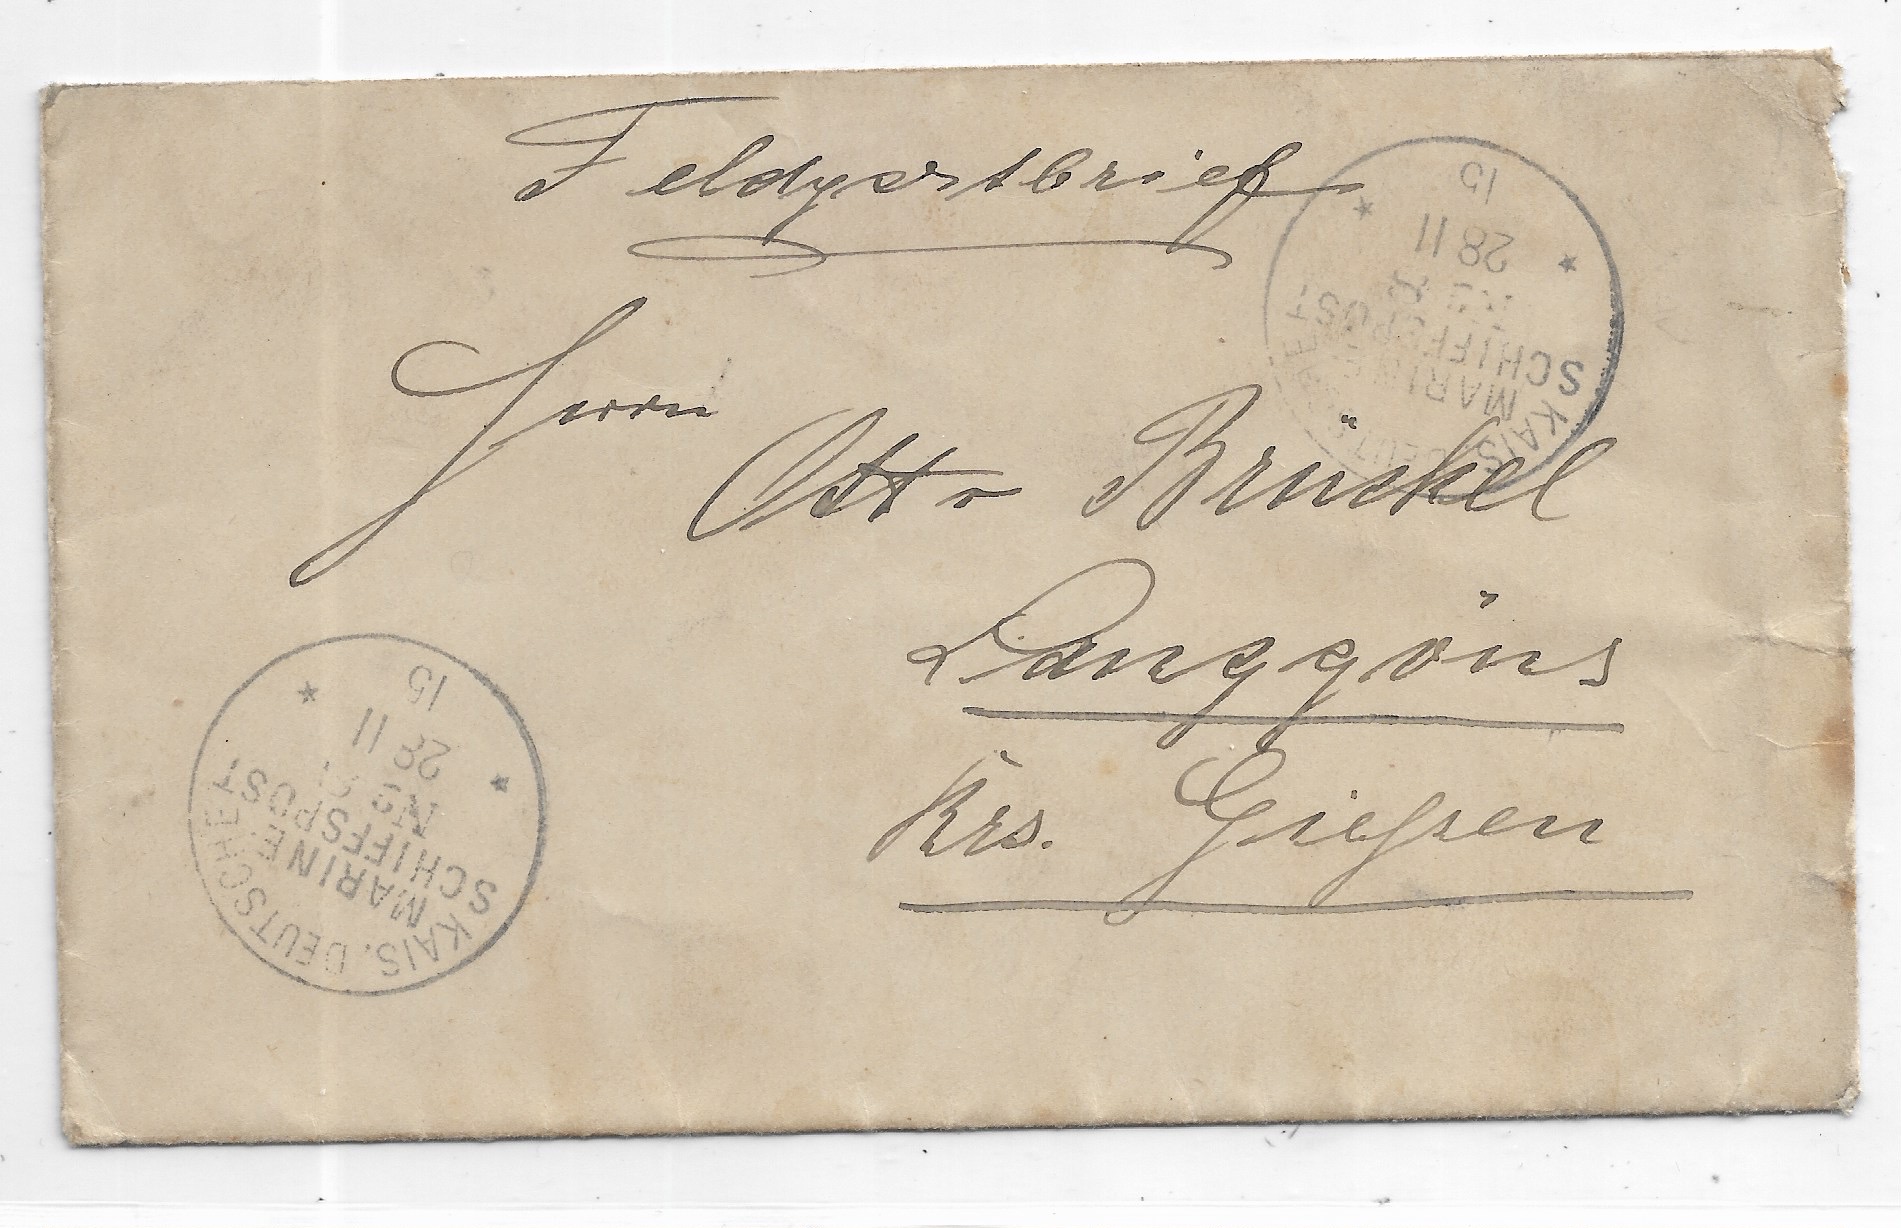 Feldpostbrief
Herrn
Otto Brückel
Langgöns
Krs. Gießen
KAIS. DEUTSCHE
MARINE
SCHIFFSPOST
No
28 11
15
KAIS. DEUTSCHE
MARINE
SCHIFFSPOST
No
28 11
15